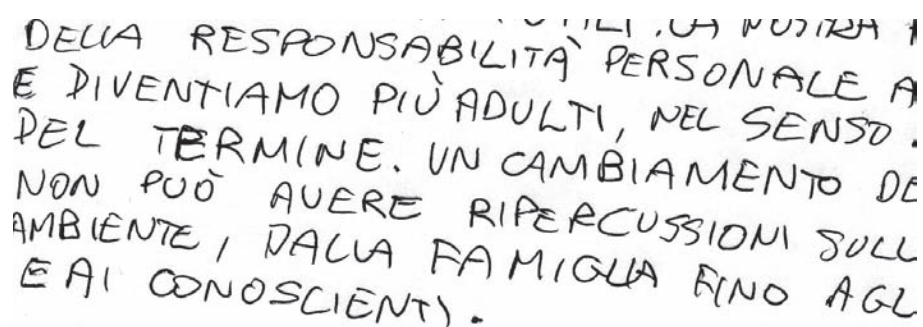 UTILI. LA NOSTRA
DELLA RESPONSABILITÀ PERSONALE A
E DIVENTIAMO PIÙ ADULTI, NEL SENSO
DEL TERMINE. UN CAMBIAMENTO DE
NON PUÒ AVERE RIPERCUSSIONI SULL
AMBIENTE, DALLA FAMIGLIA FINO AGL
E AI CONOSCIENTI.